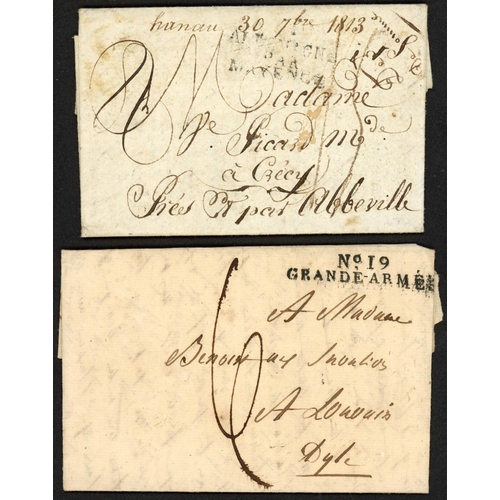 hanau 30 7bre 1813
ALLEMAGNE
PAR
MAYENCE
Madame
Ve Picard Mde
à Crécy
Près & par Abbeville
No. 19
GRANDE-ARMÉE
6
A Madame
Benoit aux
A Louvain
Dyle